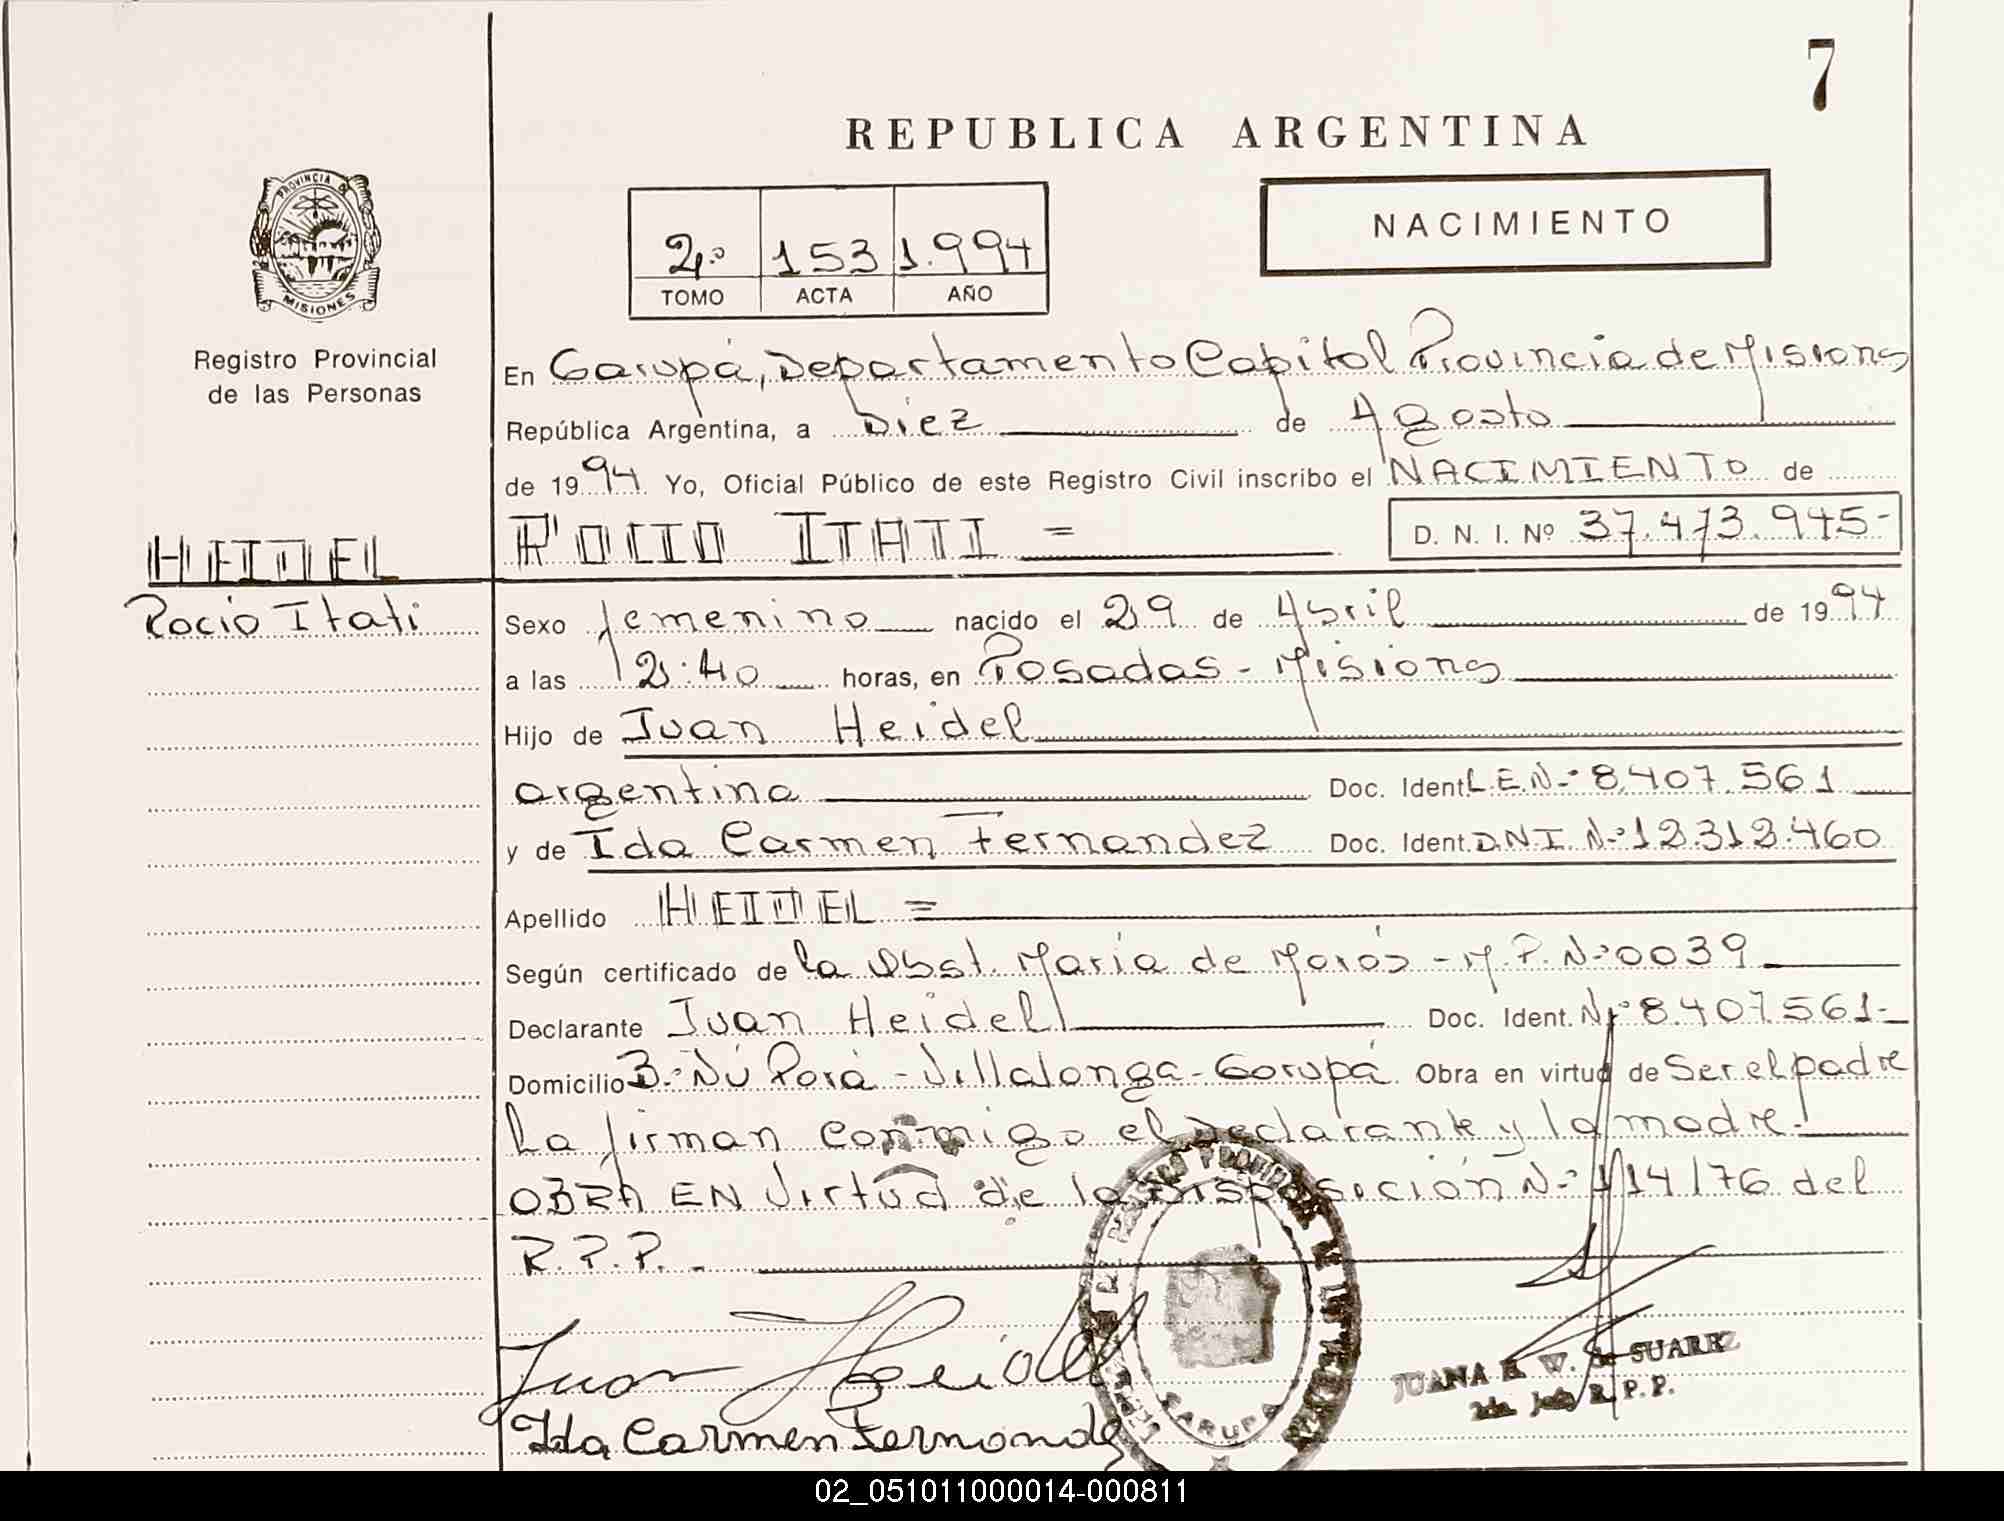 7
REPUBLICA ARGENTINA
PROVINCIA DE
MISIONES
Registro Provincial
de las Personas
2º 153 1.994
TOMO ACTA AÑO
NACIMIENTO
En Garupá, Departamento Capital Provincia de Misiones
República Argentina, a Diez de Agosto
de 1994 Yo, Oficial Público de este Registro Civil inscribo el NACIMIENTO de
HEIDEL
ROCIO ITATI = D. N. I. Nº 37.473.945-
Rocio Itati
Sexo femenino nacido el 29 de Abril de 1994
a las 12:40 horas, en Posadas - Misiones
Hijo de Juan Heidel
argentina Doc. Ident. L.E.Nº 8.407.561
y de Ida Carmen Fernandez Doc. Ident. D.N.I. Nº 12.312.460
Apellido HEIDEL =
Según certificado de la Obst. María de - M.P. Nº 0039
Declarante Juan Heidel Doc. Ident. Nº 8.407.561-
Domicilio Bº Ñú Porá - Villalonga - Garupá Obra en virtud de Ser el padre
La firman conmigo el Declarante y la madre.
OBRA EN Virtud de la Disposición Nº 114/76 del
R.P.P.
Juan Heidel
Ida Carmen Fernandez
GARUPA
JUANA E. W. de SUAREZ
2da. Jefe R. P. P.
02_051011000014-000811